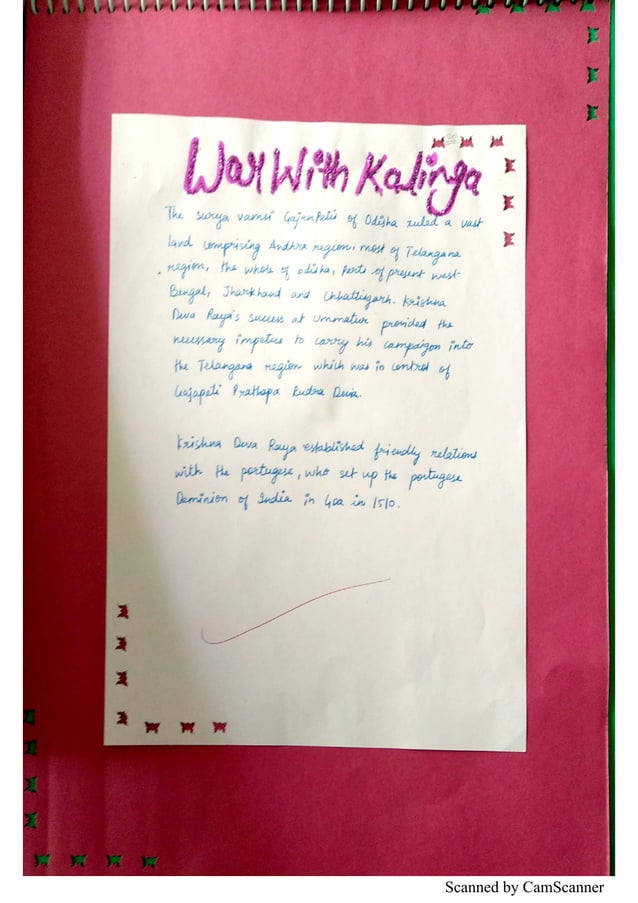 War With Kalinga
The surya vamsi Gajanpatis of Odisha ruled a vast
land comprising Andhra region, most of Telangana
region, the whole of odisha, parts of present west
Bengal, Jharkhand and Chhattisgarh. Krishna
Deva Raya's success at Ummatur provided the
necessary impetus to carry his campaign into
the Telangana region which was in control of
Gajapati Prathapa Rudra Deva.
Krishna Deva Raya established friendly relations
with the portugese, who set up the portugese
Dominion of India in Goa in 1510.
Scanned by CamScanner